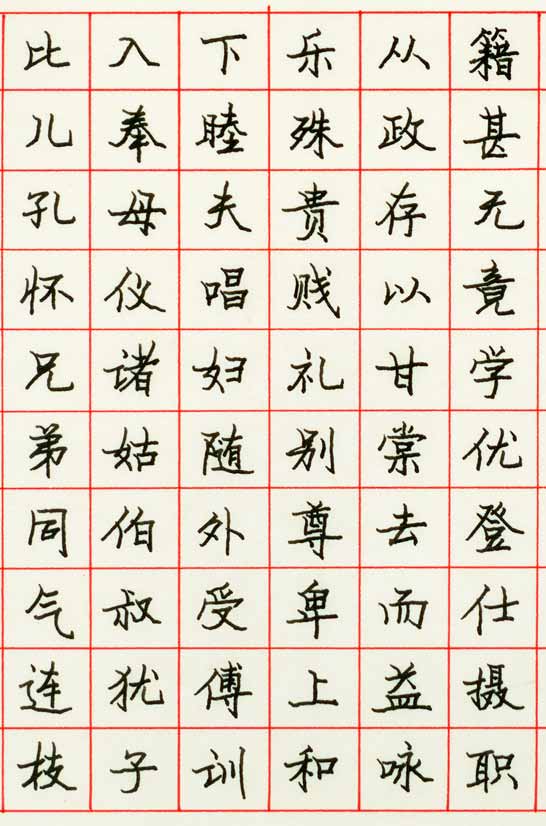 籍甚无竟学优登仕摄职
从政存以甘棠去而益咏
乐殊贵贱礼别尊卑上和
下睦夫唱妇随外受傅训
入奉母仪诸姑伯叔犹子
比儿孔怀兄弟同气连枝